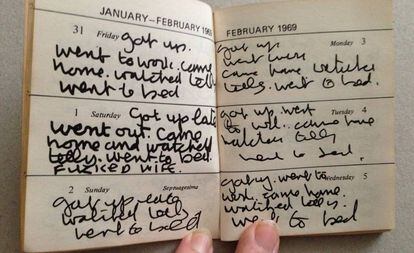 JANUARY–FEBRUARY 1969
31 Friday got up.
went to work. came
home. watched telly
went to bed
1 Saturday Got up late
went out. Came
home and watched
telly. went to bed.
FUCKED WIFE.
2 Sunday Septuagesima
got up late
watched telly
went to bed
FEBRUARY 1969
got up. Monday 3
went
came home. watched
telly. went to bed.
got up. went Tuesday 4
to work. came home
watched telly
went to bed.
got up. went to Wednesday 5
work. came home.
watched telly.
went to bed